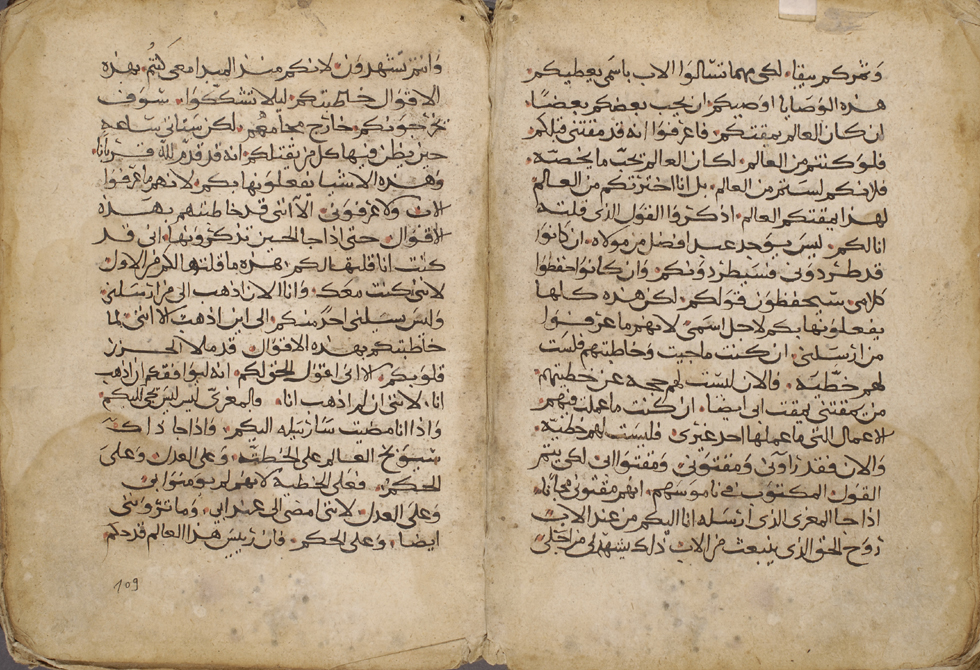 وثمركم يبقا، لكي مهما تسالوا الاب باسمي يعطيكم
هذه الوصايا اوصيكم ان يحب بعضكم بعضاً.
ان كان العالم يمقتكم. فاعرفوا انه قد مقتني قبلكم
فلو كنتم من العالم. لكان العالم يحب ما يخصه.
فلانكم لستم من العالم. بل انا اخترتكم من العالم
لهذا يمقتكم العالم. اذكروا القول الذي قلته
انا لكم. ليس يوجد عبد افضل من مولاه. ان كانوا
قد طردوني فسيطردونكم. وان كانوا حفظوا
كلامي. سيحفظون قولكم. لكن هذه كلها
يفعلونها بكم لاجل اسمي. لانهم ما عرفوا
من ارسلني. ان كنت ما جيت وخاطبتهم فلست
لهم خطية. والان ليست لهم حجه عن خطيتهم
من يمقتني يمقت ابي ايضا. ان كنت ما عملت فيهم
الاعمال التي ما عملها احد غيري. فليست لهم خطية.
والان فقد راوني ومقتوني. ومقتوا ابي لكي يتم
القول المكتوب في ناموسهم. انهم مقتوني مجانًا.
اذا جا المعزي الذي ارسله انا اليكم من عند الاب
روح الحق الذي ينبعث من الاب ذلك يشهد لي من اجلي
وانتم تشهدون. لانكم منذ المبدا معي كنتم. بهذه
الاقوال خاطبتكم ليلا تشككوا. سوف
يخرجونكم خارج مجامعهم. لكن ستاتي ساعه
حين يظن فيها كل من يقتلكم انه قد قدم لله قرباناً.
وهذه الاشيا يفعلونها بكم. لانهم ما عرفوا
الاب ولا عرفوني. الا انني قد خاطبتهم بهذه
الاقوال. حتى اذا جا الحين تذكرونها. اني قد
كنت انا قلتها لكم. هذه ما قلتها لكم من الاول
لانني كنت معكم. وانا الان اذهب الى من ارسلني.
وليس يسلني احد منكم. الى اين اذهب لا انني لما
خاطبتكم بهذه الاقوال. قد ملا الحزن
قلوبكم. لا اني اقول الحق لكم. انه ليوافقكم ان اذهب
انا. لانني ان لم اذهب انا. فالمعزي ليس يجي اليكم
واذا انا مضيت سارسله اليكم. واذا جا ذاك
سيوبخ العالم على الخطية. وعلى العدل وعلى
الحكم. فعلى الخطية لانهم لم يومنوا بي
وعلى العدل. لانني امضي الى عند ابي. وما تروني
ايضا. وعلى الحكم. فان رييس هذا العالم قد حكم
109